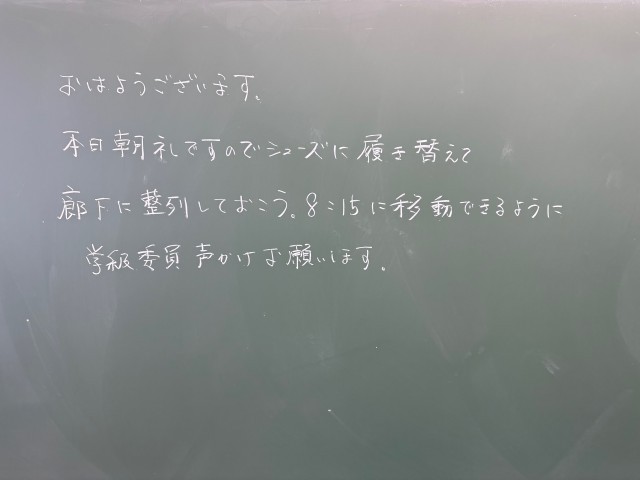 おはようございます。
本日朝礼ですのでシューズに履き替えて
廊下に整列しておこう。8:15に移動できるように
学級委員声かけお願いします。